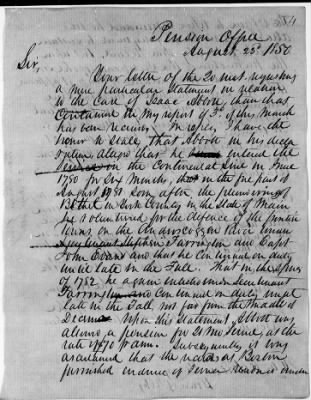 Pension Office
August 25th 1850
Sir,
Your letter of the 20 inst. requesting
a more particular statement in relation
to the case of Isaac Abbott, than that
contained in my report of of this month
has been received. In reply, I have the
honor to state, that Abbott in his decla
ration alleged that he entered the
service on the Continental Line in June
1780 for six months, that in the
August 1781 soon after the plundering of
Bethel in York County in the State of Maine
he volunteered for the defence of the frontier
towns, on the Androscoggin River under
Lieutenant Stephen Farrington and Capt.
John Evans and that he continued on duty
until late in the Fall. That in the Spring
of 1782, he again under Lieutenant
Farrington and continued on duty until
late in the Fall, not far from the middle of
December. Upon this statement, Abbot was
allowed a pension for 21 Mo. service, at the
rate of $70 pr ann. Subsequently it was
ascertained that the records at Boston
furnished evidence of service under